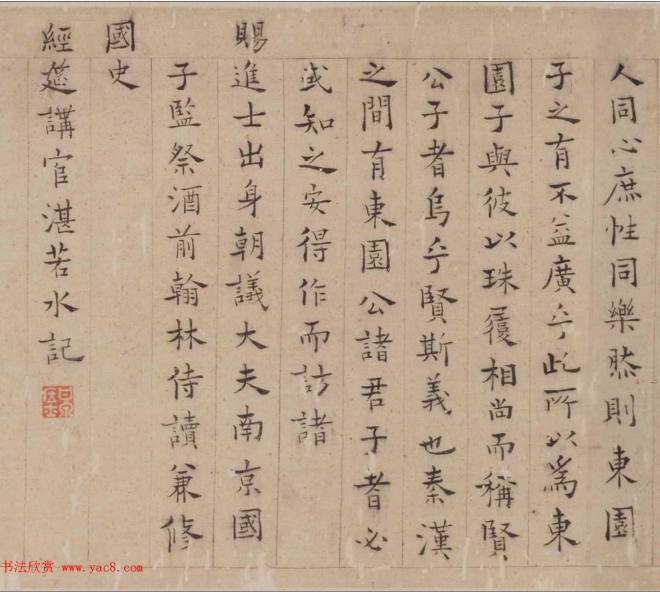 人同心庶性同樂然則東園
子之有不益廣乎此所以爲東
園子與彼以珠履相尚而稱賢
公子者烏乎賢斯義也秦漢
之間有東園公諸君子者必
或知之安得作而訪諸
賜進士出身朝議大夫南京國
子監祭酒前翰林侍讀兼修
國史
經筵講官湛若水記
书法欣赏 www.yac8.com